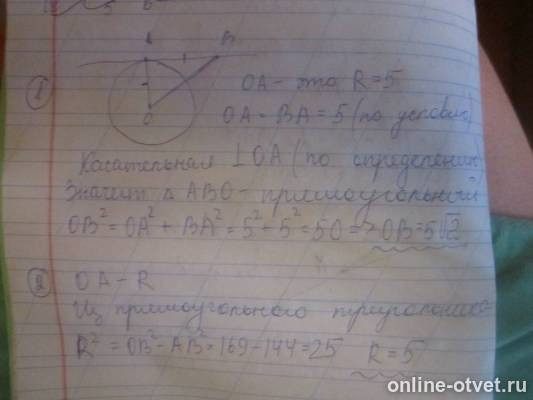 A B
O
1 OA - это R = 5
OA = BA = 5 (по условию)
Касательная ⊥ OA (по определению)
Значит △ ABO - прямоугольный
OB² = OA² + BA² = 5² + 5² = 50 => OB = 5√2
2 OA - R
Из прямоугольного треугольника
R² = OB² - AB² = 169 - 144 = 25 R = 5
online-otvet.ru